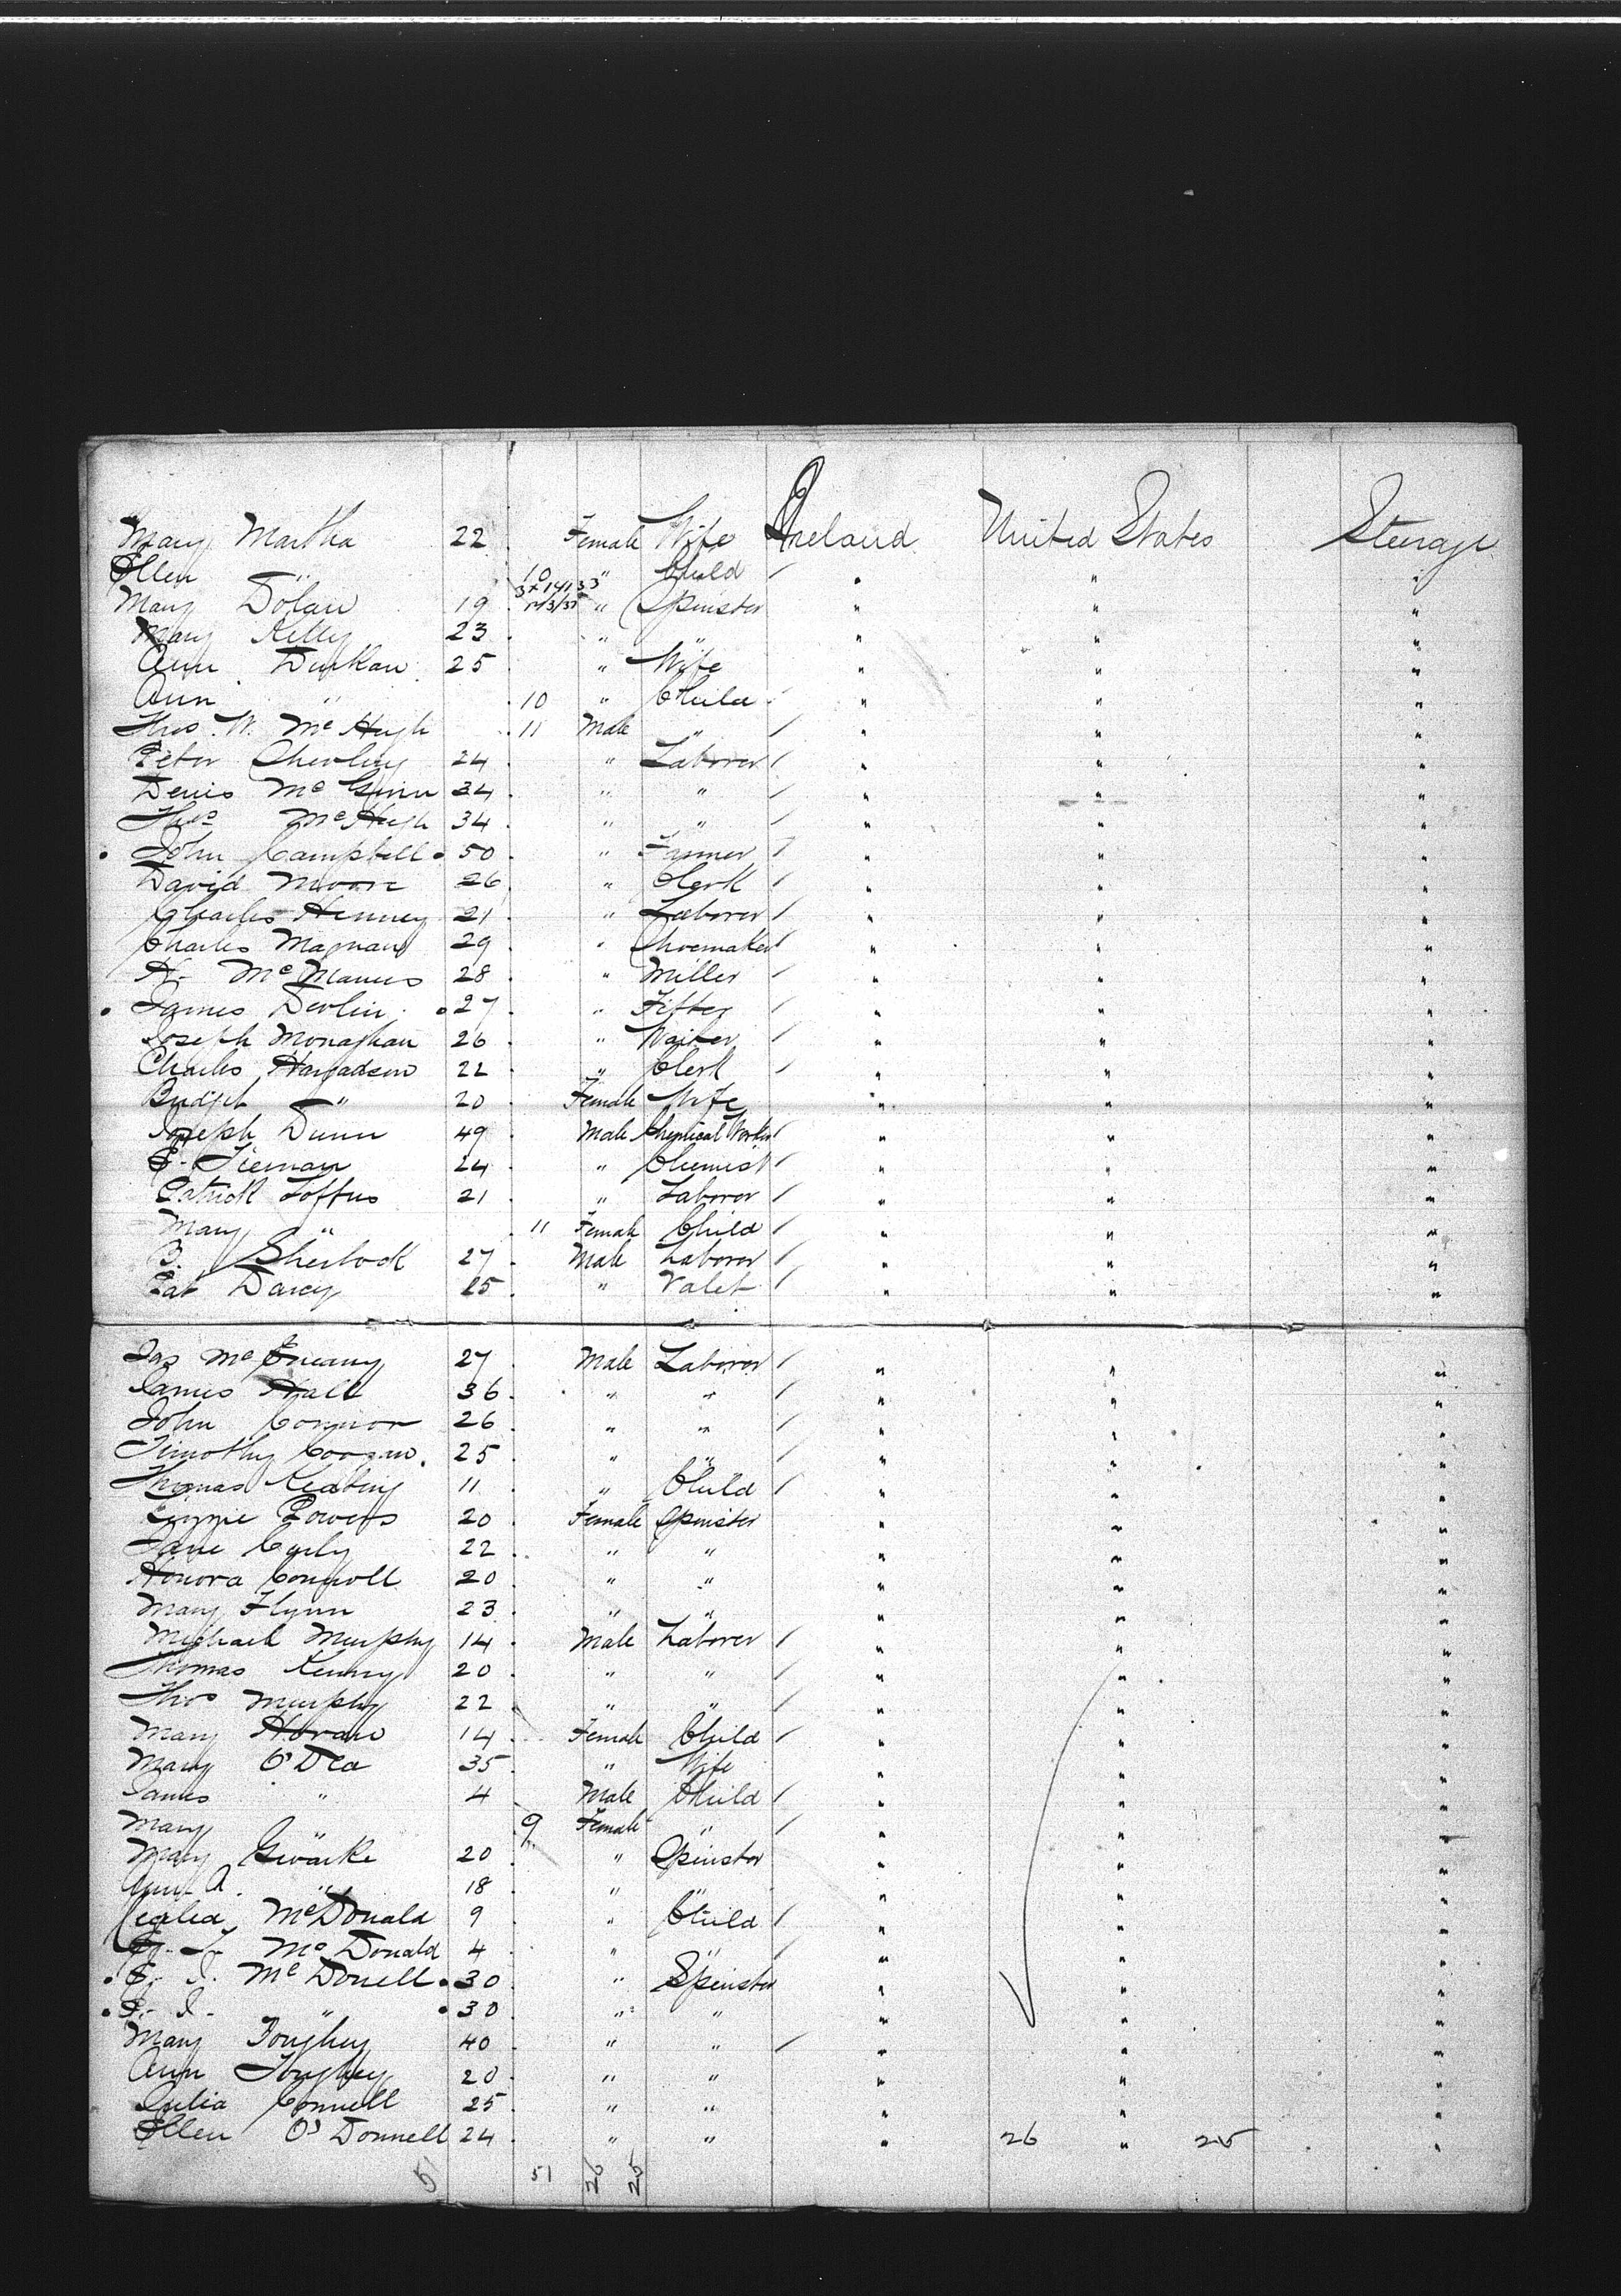 Mary Martha 22 Female Wife Ireland United States Steerage
Ellen " 10 " Child " " "
3x14133
Mary Dolan 19 " Spinster " " "
Mary Kelly 23 " " " " "
Ann Durkan 25 " Wife " " "
Ann " 10 " Child " " "
Thos. W. McHugh 11 Male " " " "
Peter 24 " Laborer " " "
Denis McGinn 34 " " " " "
Thos McHugh 34 " " " " "
John Campbell 50 " Farmer " " "
David Moore 26 " Clerk " " "
Charles Henney 21 " Laborer " " "
Charles Magnan 29 " Shoemaker " " "
H. McManus 28 " Miller " " "
James Devlin 27 " Fitter " " "
Joseph Monaghan 26 " Waiter " " "
Charles 22 " Clerk " " "
Bridget " 20 Female Wife " " "
Joseph Dunn 49 Male Chemical Worker " " "
Tiernan 24 " Chemist " " "
Patrick Loftus 21 " Laborer " " "
Mary " 11 Female Child " " "
B. Sherlock 27 Male Laborer " " "
Pat Darcy 25 " Valet " " "
Jas Mc 27 Male Laborer " " "
James Hall 36 " " " " "
John Connor 26 " " " " "
Timothy Coogan 25 " " " " "
Thomas Keating 11 " Child " " "
Lizzie Powers 20 Female Spinster " " "
Jane Curly 22 " " " " "
Honora Connoll 20 " " " " "
Mary Flynn 23 " " " " "
Michael Murphy 14 Male Laborer " " "
Thomas Kenny 20 " " " " "
Thos Murphy 22 " " " " "
Mary Horan 14 Female Child " " "
Mary O'Dea 35 " Wife " " "
James " 4 Male Child " " "
Mary " 9 Female " " " "
Mary 20 " Spinster " " "
Ann A. " 18 " " " " "
Cecilia McDonald 9 " Child " " "
McDonald 4 " " " " "
McDonell 30 " Spinster " " "
" 30 " " " " "
Mary Foughey 40 " " " " "
Ann Foughey 20 " " " " "
Julia Connell 25 " " " " "
Ellen O'Donnell 24 " " " 26 " 25 "
51 51 26 25